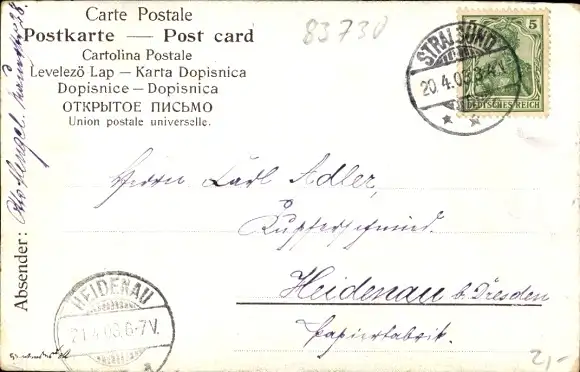 Carte Postale
Postkarte — Post card
Cartolina Postale
Levelező Lap – Karta Dopisnica
Dopisnice – Dopisnica
ОТКРЫТОЕ ПИСЬМО
Union postale universelle.
83730
STRALSUND
20.4.03.3-4.N.
5
DEUTSCHES REICH
Absender: Otto Mengel.
Herrn Carl Adler,
Kupferschmied.
Heidenau b. Dresden
Papierfabrik.
HEIDENAU
21.4.03.6-7V.
2,-